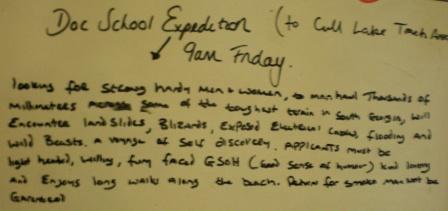 Doc School Expedition (to Cull Lake
9am Friday.
looking for strong hardy men & women, to man haul Thousands of
Millimeters some of the toughest terrain in South Georgia, will
Encounter land slides, Blizards, Exposed Electrical Cables, flooding and
wild Beasts. a voyage of self discovery. Applicants must be
light hearted, willing, funy faced GSOH (Good sense of humour) kind loving
and Enjoys long walks along the beach. Return for smoko may not be
Garenteed